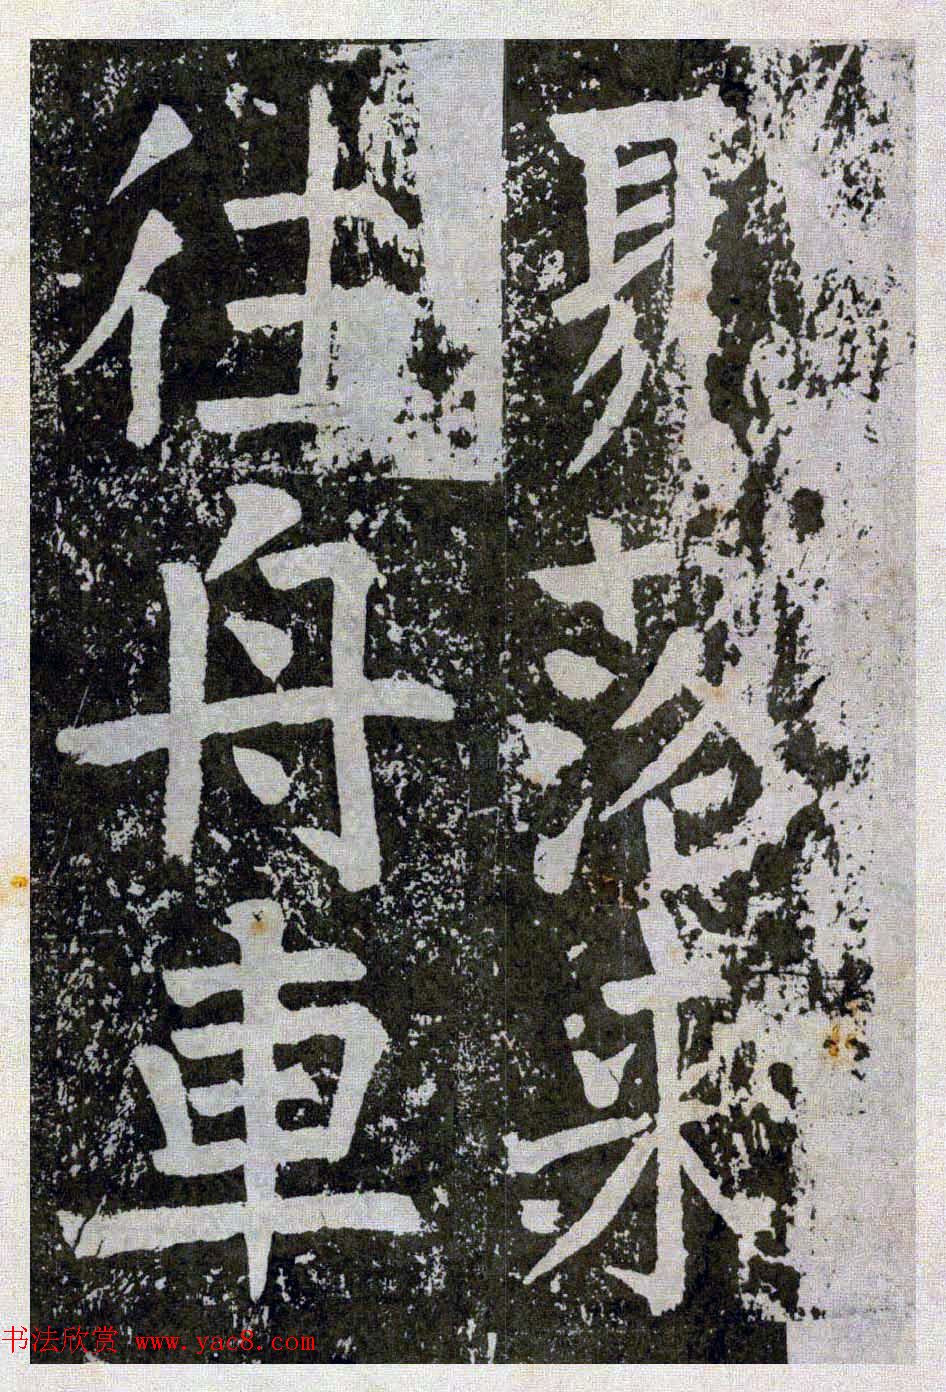 聚落来
往舟車
书法欣赏 www.yac8.com